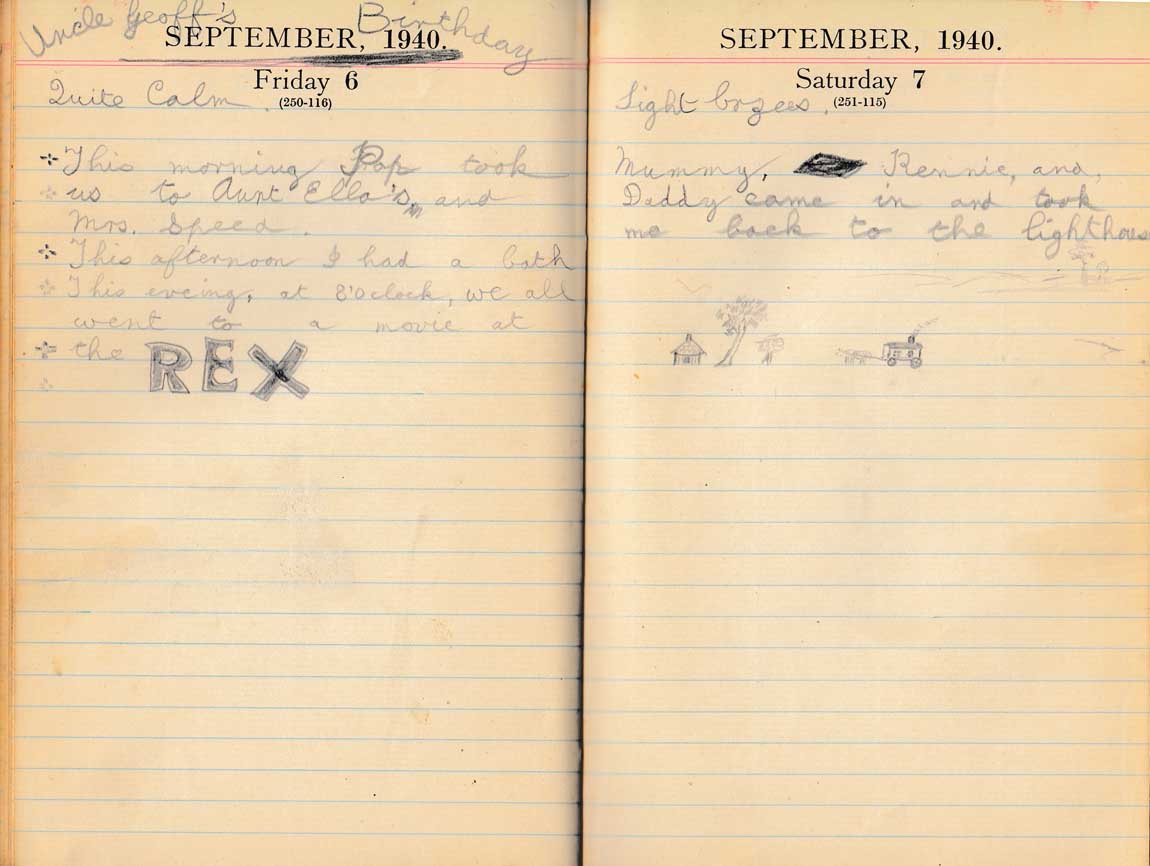 Uncle Geoff's Birthday
SEPTEMBER, 1940.
Friday 6
Quite Calm.
(250-116)
This morning Pop took
us to Aunt Ella's, and
Mrs. Speed.
This afternoon I had a bath
This eveing, at 8'Oclock, we all
went to a movie at
the REX
SEPTEMBER, 1940.
Saturday 7
Light brzees.
(251-115)
Mummy, Rennie, and,
Daddy came in and took
me back to the lighthous